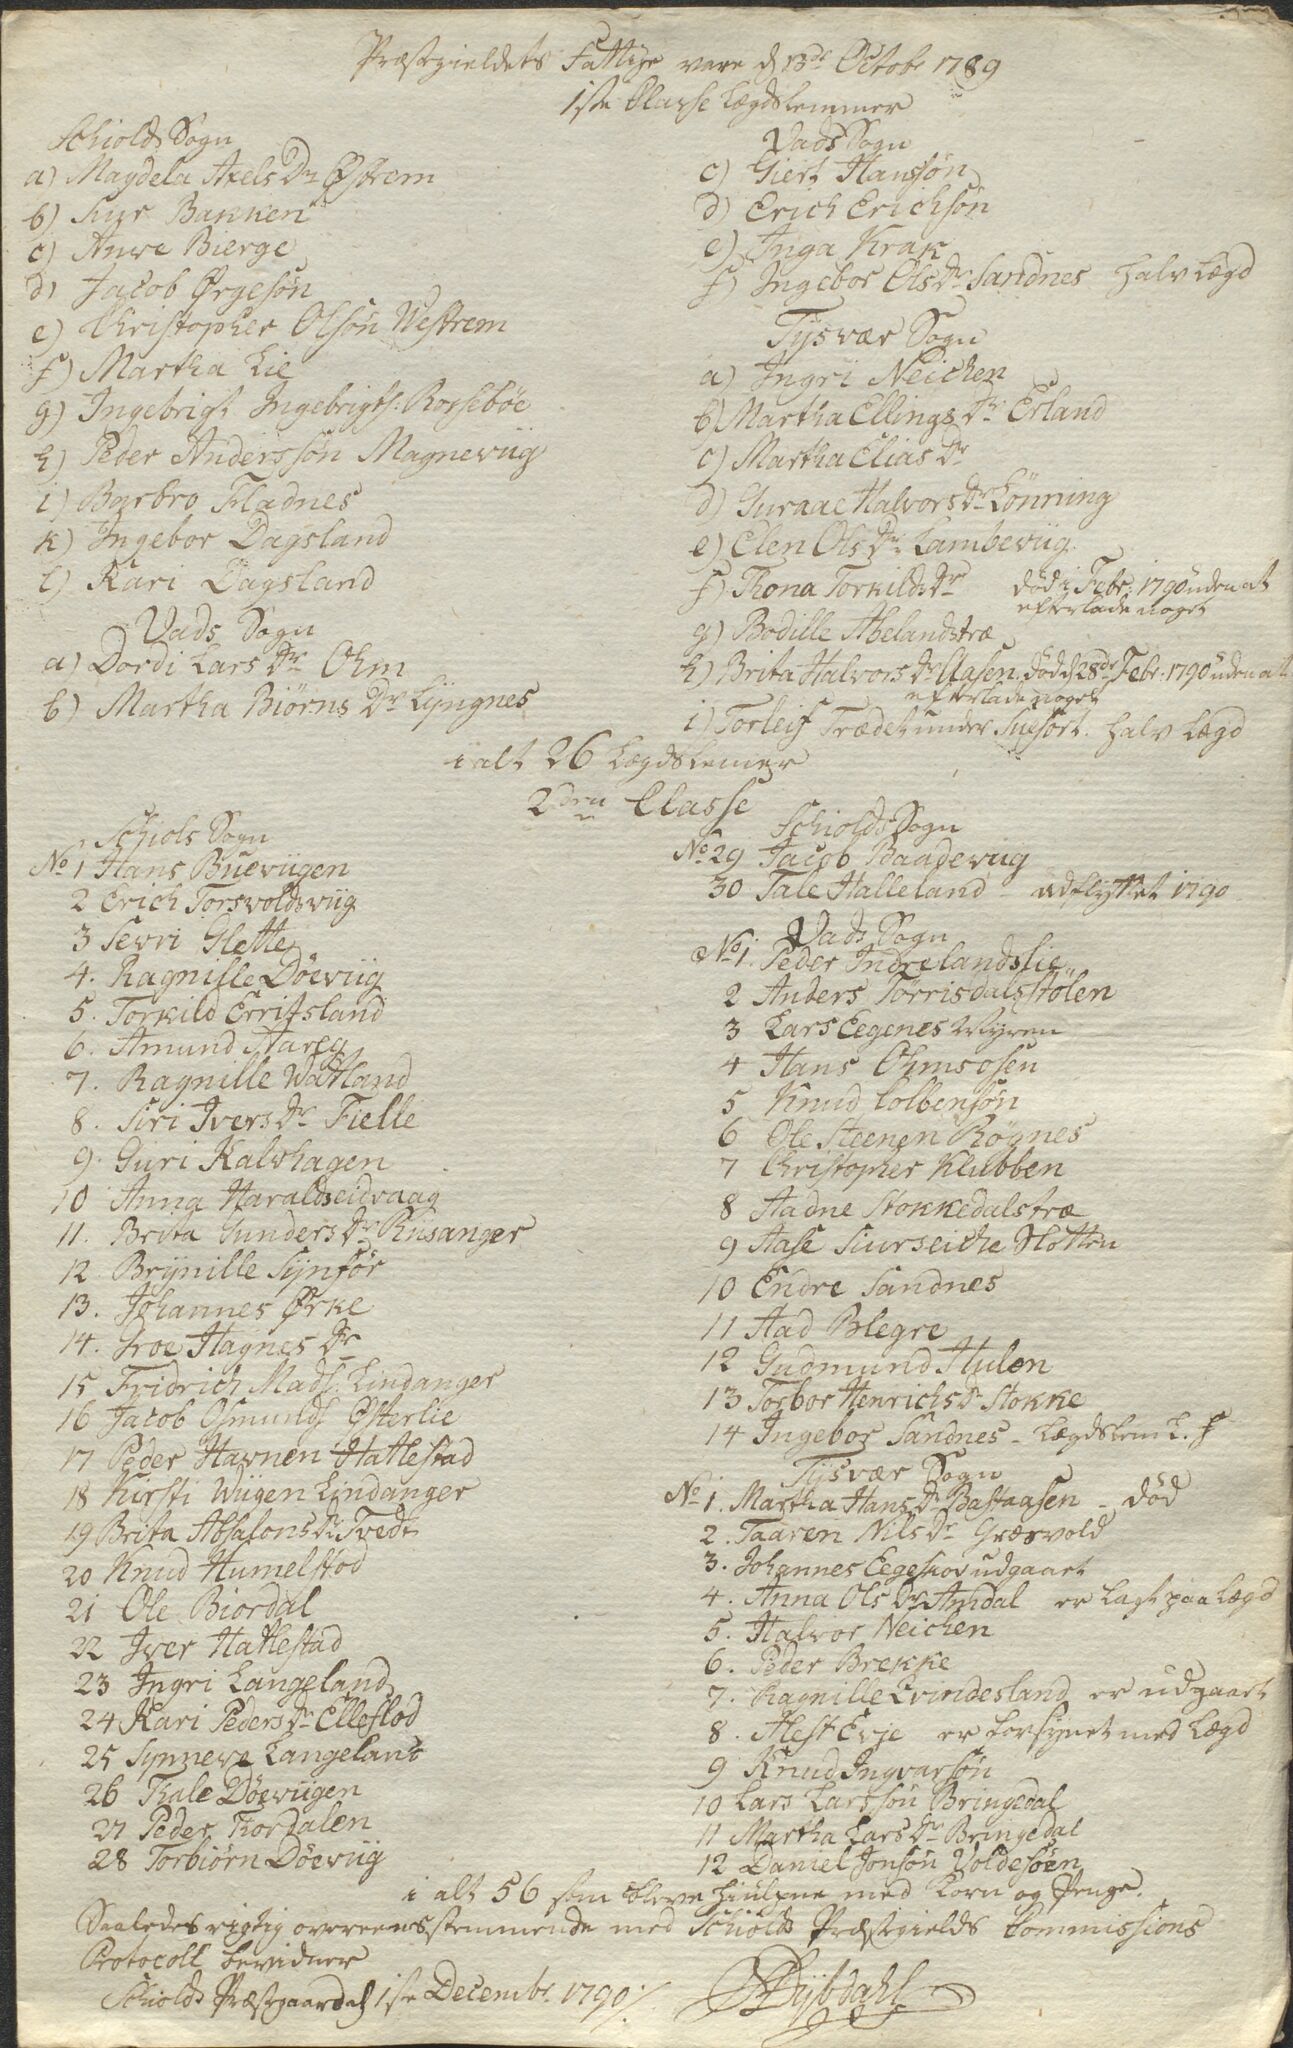 Præstegieldets Fattige vare d 13de Octobr 1789
1ste Classe Lægdslemmer
Schiolds Sogn
a) Magdela Axels Dr Østrem
b) Siur Bakken
c) Anve Bierge
d) Jacob Ørgesøn
e) Christopher Olsøn Westrem
f) Martha Lie
g) Ingebrigt Ingebrigts: Rossebøe
h) Peder Anderssøn Magneviig
i) Barbro Fladnes
k) Ingebor Dagsland
l) Kari Dagsland
Vads Sogn
a) Dordi Lars Dr Ohm
b) Martha Biørns Dr Lyngnes
Vads Sogn
c) Giert Hanssøn
d) Erich Erichsøn
e) Inga Krak
f) Ingebor Ols Dr Sandnes halv Lægd
Tysvær Sogn
a) Ingri Neichen
b) Martha Ellings Dr Erland
c) Martha Elias Dr
d) Guraae Halvors Dr Lønning
e) Elen Ols Dr Lambeviig
f) Thona Torkilds Dr død i Febr: 1790 uden at
efterlade noget
g) Bodille Abelandstræ
h) Brita Halvors Dr Aasen. død d 28de Febr: 1790 uden at
efterlade noget
i) Torleif Trædet under Suesort. halv Lægd
i alt 26 Lægdslemer
2den Classe
Schiols Sogn
No 1 Hans Bueviigen
2 Erich Torsvoldsviig
3 Sevri Slette
4. Ragnille Döeviig
5. Torkild Erritsland
6. Amund Aareg
7. Ragnille Watland
8. Siri Ivers Dr Fielle
9. Guri Kalvhagen
10 Anna Haraldseidvaag
11. Brita Gunders Dr Riisanger
12 Brynille Synför
13. Johannes Ørke
14. Groe Hagnes Dr
15 Fridrich Mads: Lindanger
16 Jacob Osmunds Østerlie
17 Peder Havnen Hatlestad
18 Kirsti Wiigen Lindanger
19 Brita Absalons Dr Tvedt
20 Knud Humelstod
21 Ole Biordal
22 Iver Hatlestad
23 Ingri Langeland
24 Kari Peders Dr Elleflod
25 Synneve Langelant
26 Thale Döeviigen
27 Peder Thordalen
28 Torbiørn Döeviig
Schiolds Sogn
No 29 Jacob Baadeviig
30 Tale Halleland udflyttet 1790
Vads Sogn
No 1. Peder Indrelandslie
2 Anders Törrisdalsstölen
3 Lars Eegenes Myren
4 Hans Ohmsosen
5 Knud Colbensøn
6 Ole Steenen Røgnes
7 Christopher Klubben
8 Aadne Stokkedalstræ
9 Aase Siurseiche Slotten
10 Endre Sandnes
11 Aad Blegre
12 Gudmund Hulen
13 Torbor Henrichs Dr Stokke
14 Ingebor Sandnes - Lægdslem L. f
Tysvær Sogn
No 1. Martha Hans Dr Bastaasen - død
2. Taaren Nils Dr Græsvold
3. Johannes Eegeskov udgaaet
4. Anna Ols Dr Amdal er lagt paa Lægd
5. Halvor Neichen
6. Peder Brekke
7. Ragnille Evindesland er udgaaet
8. Alest Evje er forsynet med Lægd
9 Knud Ingvarsøn
10 Lars Larssøn Bringedal
11 Martha Lars Dr Bringedal
12 Daniel Jonsøn Voldesøen
i alt 56 som bleve hiulpne med Korn og Penge.
Saaledes rigtig overeensstemmende med Schiolds Præstegields Commissions
Protocoll bevidner
Schiolds Præstegaard d 1ste Decembr. 1790
Dybdahl